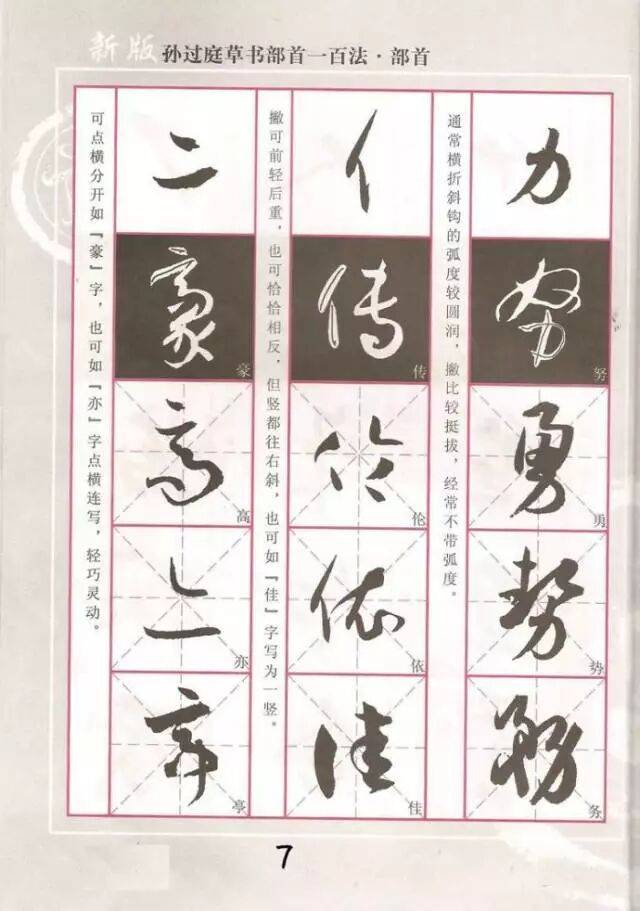 新版 孙过庭草书部首一百法·部首
力
努
勇
势
务
通常横折斜钩的弧度较圆润，撇比较挺拔，经常不带弧度。
亻
传
伦
依
佳
撇可前轻后重，也可恰恰相反，但竖都往右斜，也可如『佳』字写为一竖。
亠
豪
高
亦
亭
可点横分开如『豪』字，也可如『亦』字点横连写，轻巧灵动。
7